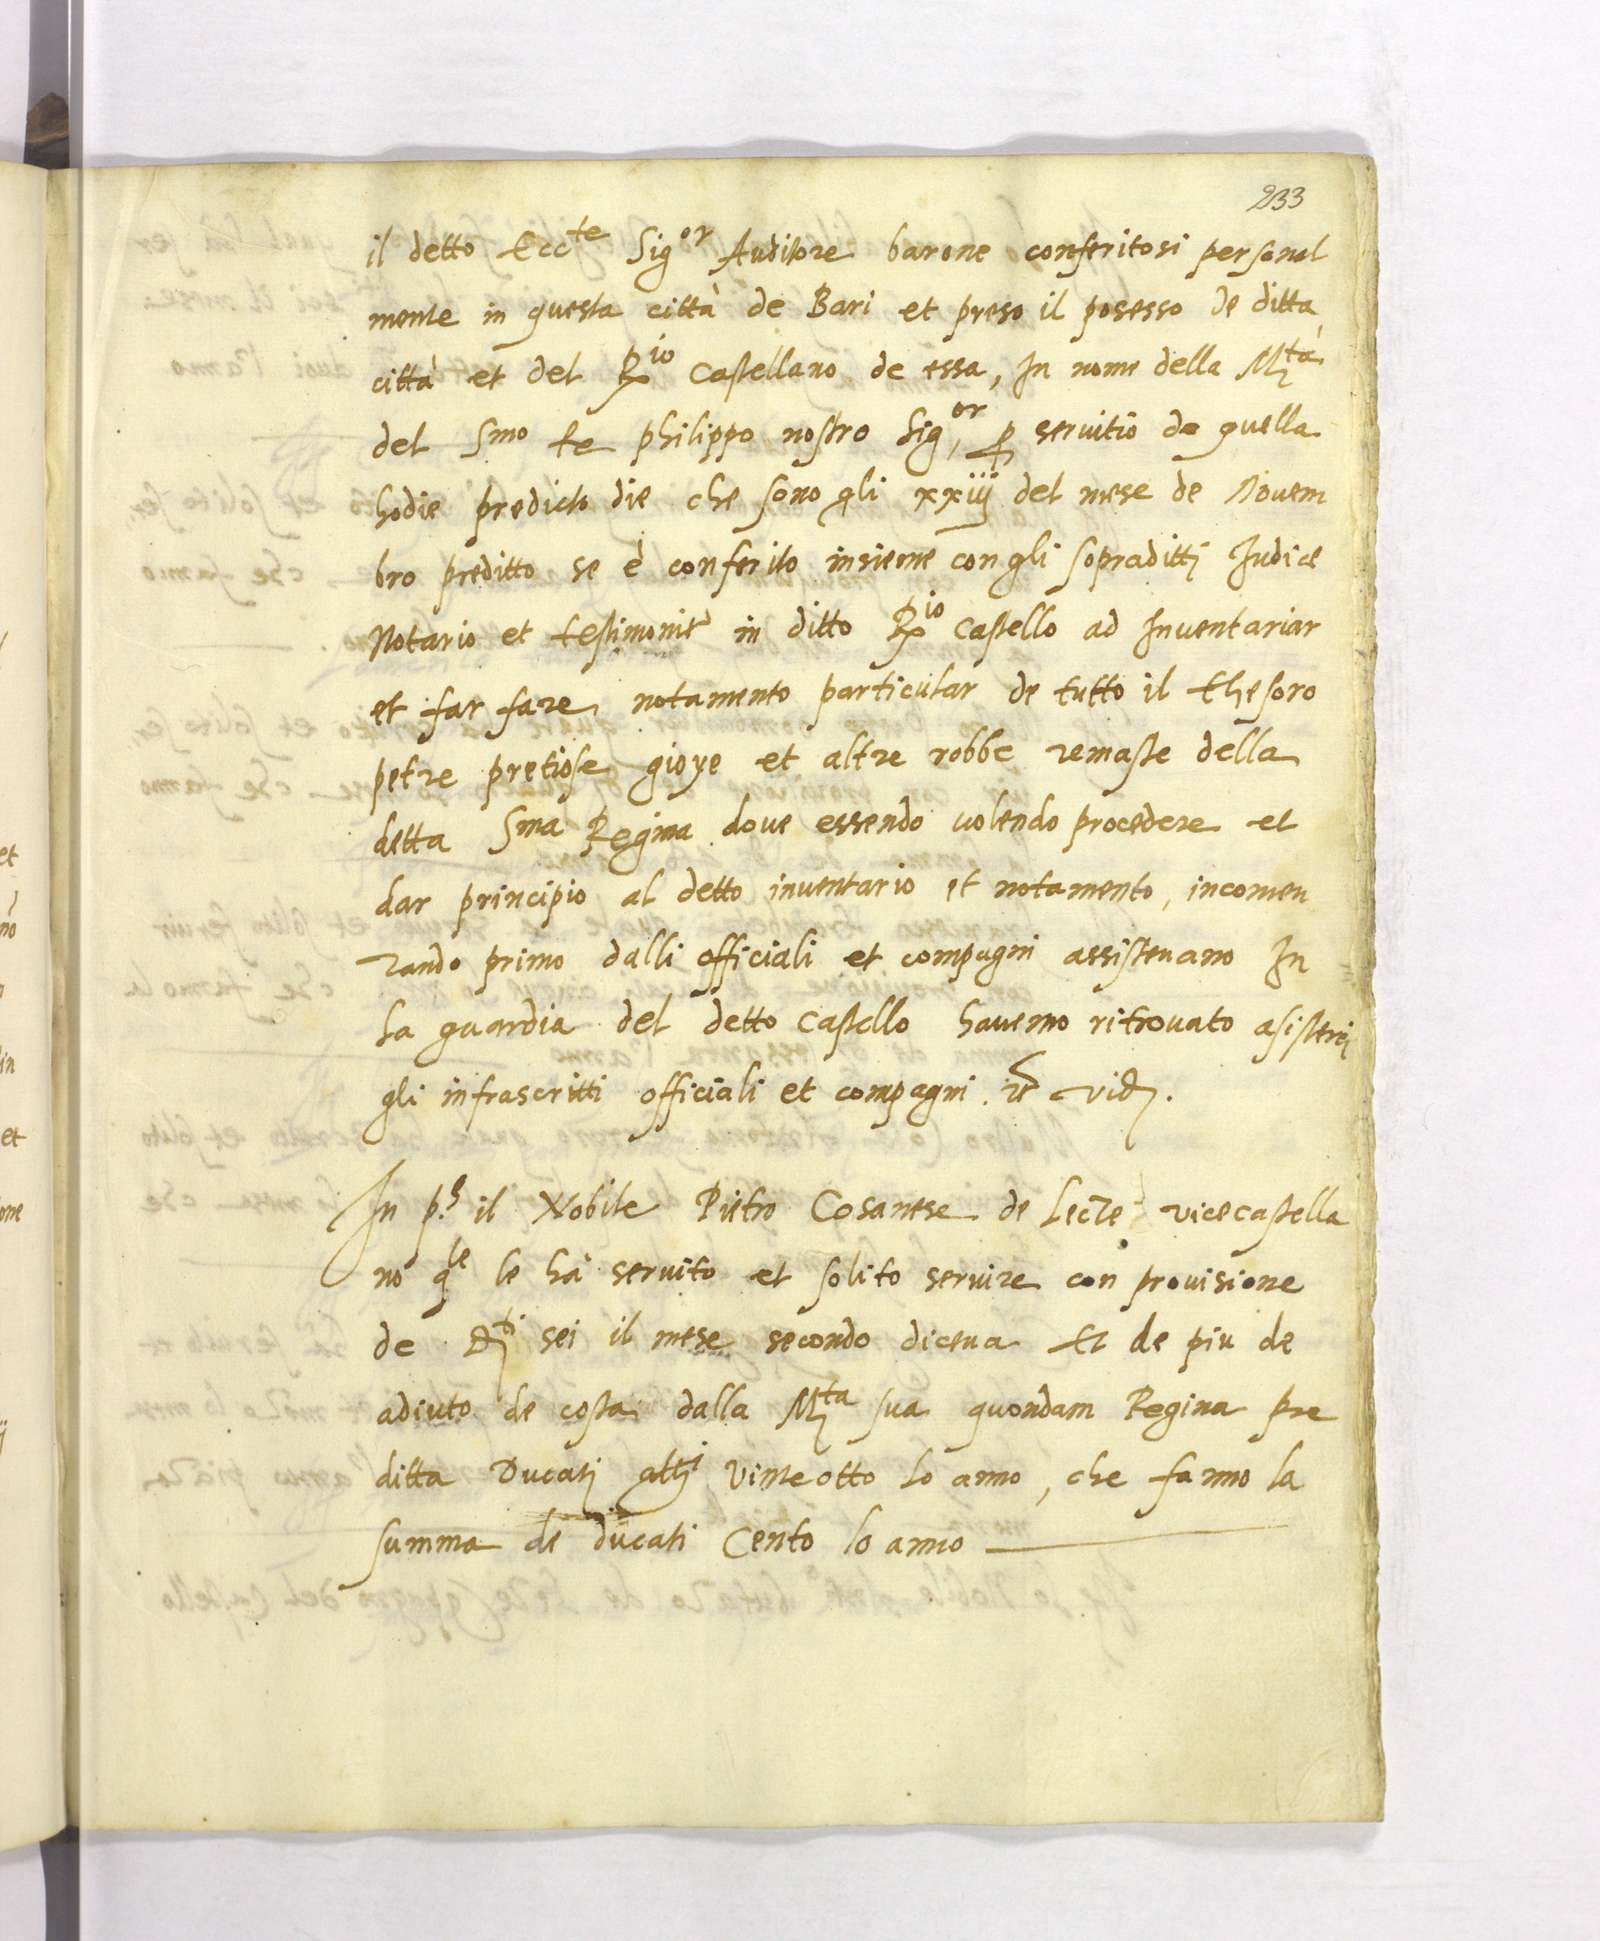 233
il detto Ecc.te Sig.or Auditore barone conferitosi personal
mente in questa città de Bari et preso il posesso de ditta
città et del R.io Castellano de essa, In nome della M.tà
del S.mo Re philippo nostro Sig.or, p servitio de quella
hodie predicto die che sono gli xxiiij del mese de Novem
bro preditto se è conferito insieme con gli sopraditti Iudice
Notario et testimonii in ditto R.io Castello ad Inventariar
et far fare notamento particular de tutto il thesoro
petre pretiose gioye et altre robbe remaste della
detta S.ma Regina dove essendo volendo procedere et
dar principio al detto inventario et notamento, incomen
zando primo dalli officiali et compagni assistevano In
la guardia del detto Castello havemo ritrovato asisterei
gli infrascritti officiali et compagni vid.
In p.s il Nobile Pietro Cosanese de Lecce vicecastella
no q.le le hà servito et solito servire con provisione
de D.ti sei il mese secondo diceva Et de piu de
adiuto de costa dalla M.ta sua quondam Regina pre
ditta Ducati altri vinteotto lo anno, che fanno la
summa de ducati Cento lo anno